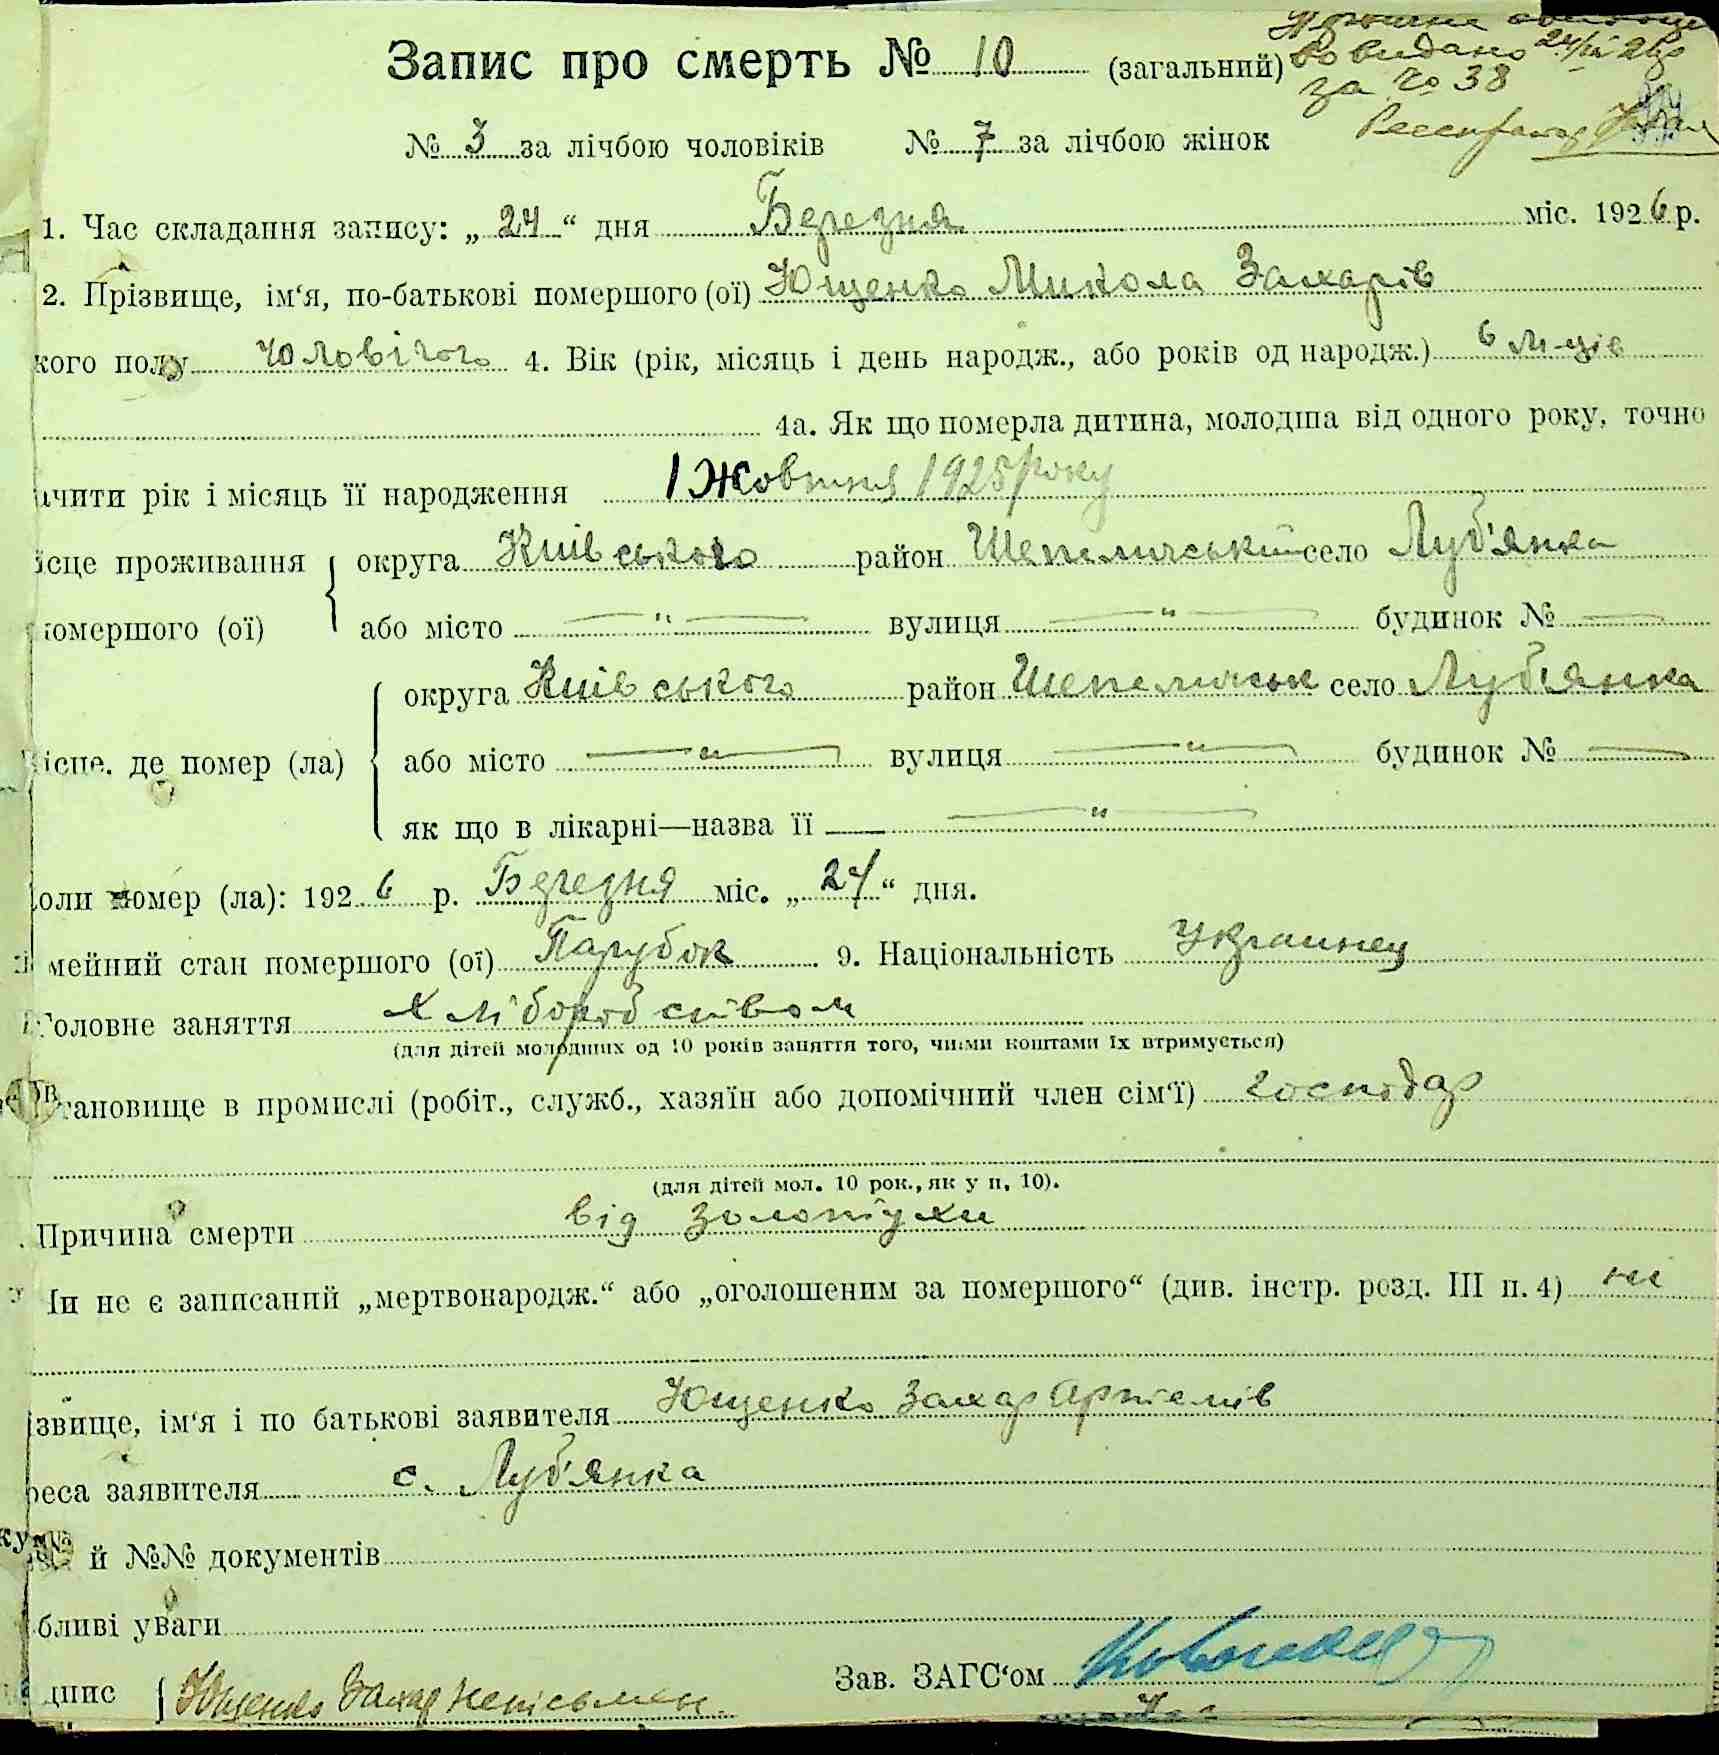 Запис про смерть № 10 (загальний)
видано 24/III 26 р
за № 38
№ 3 за лічбою чоловіків № 7 за лічбою жінок
1. Час складання запису: „ 24 “ дня Березня міс. 1926 р.
2. Прізвище, ім‘я, по-батькові помершого (ої) Ющенко Микола Захарів
кого полу Чоловічого 4. Вік (рік, місяць і день народж., або років од народж.) 6 м-ців
4а. Як що померла дитина, молодша від одного року, точно
ачити рік і місяць її народження 1 Жовтня 1925 року
ісце проживання округа Київського район Шепелицький село Луб'янка
помершого (ої) або місто — " — вулиця — " — будинок № —
округа Київського район Шепелицьк село Луб'янка
ісце, де помер (ла) або місто — " — вулиця — " — будинок № —
як що в лікарні—назва її — " —
Коли помер (ла): 1926 р. Березня міс. „ 24 “ дня.
мейний стан помершого (ої) Парубок 9. Національність Украинец
Головне заняття Хліборобством
(для дітей молодших од 10 років заняття того, чиїми коштами їх втримується)
тановище в промислі (робіт., служб., хазяїн або допомічний член сім‘ї) господар
(для дітей мол. 10 рок., як у п. 10).
Причина смерти від золотухи
Чи не є записаний „мертвонародж.“ або „оголошеним за помершого“ (див. інстр. розд. III п. 4) ні
ізвище, ім‘я і по батькові заявителя Ющенко Захар Артемів
реса заявителя с. Луб'янка
й №№ документів
бливі уваги
дпис Ющенко Захар неписьмен.
Зав. ЗАГС‘ом